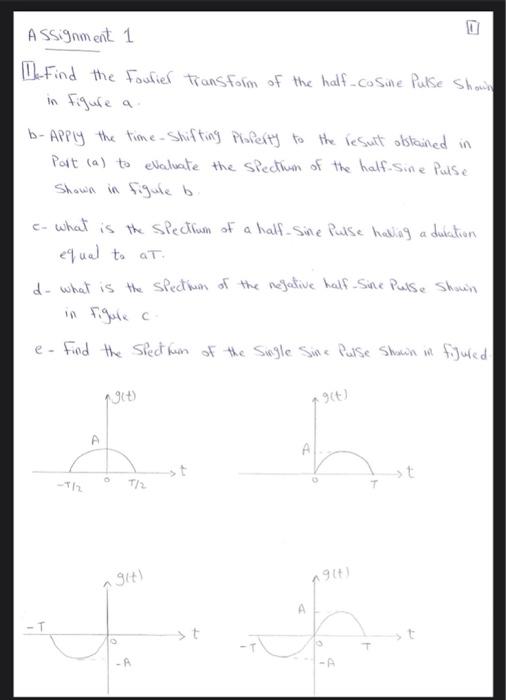 Assignment 1
1
1a- Find the Fourier Transform of the half-cosine Pulse Shown
in Figure a.
b- APPly the time-Shifting Property to the result obtained in
Part (a) to evaluate the Spectrum of the half-Sine Pulse
Shown in figure b.
c- what is the Spectrum of a half-Sine Pulse having a duration
equal to aT.
d- what is the Spectrum of the negative half-Sine Pulse Shown
in Figure c.
e- Find the Spectrum of the Single Sine Pulse Shown in figured.
g(t)
A
-T/2 0 T/2 t
g(t)
A
0 T t
g(t)
-T 0 t
-A
g(t)
A
-T 0 T t
-A